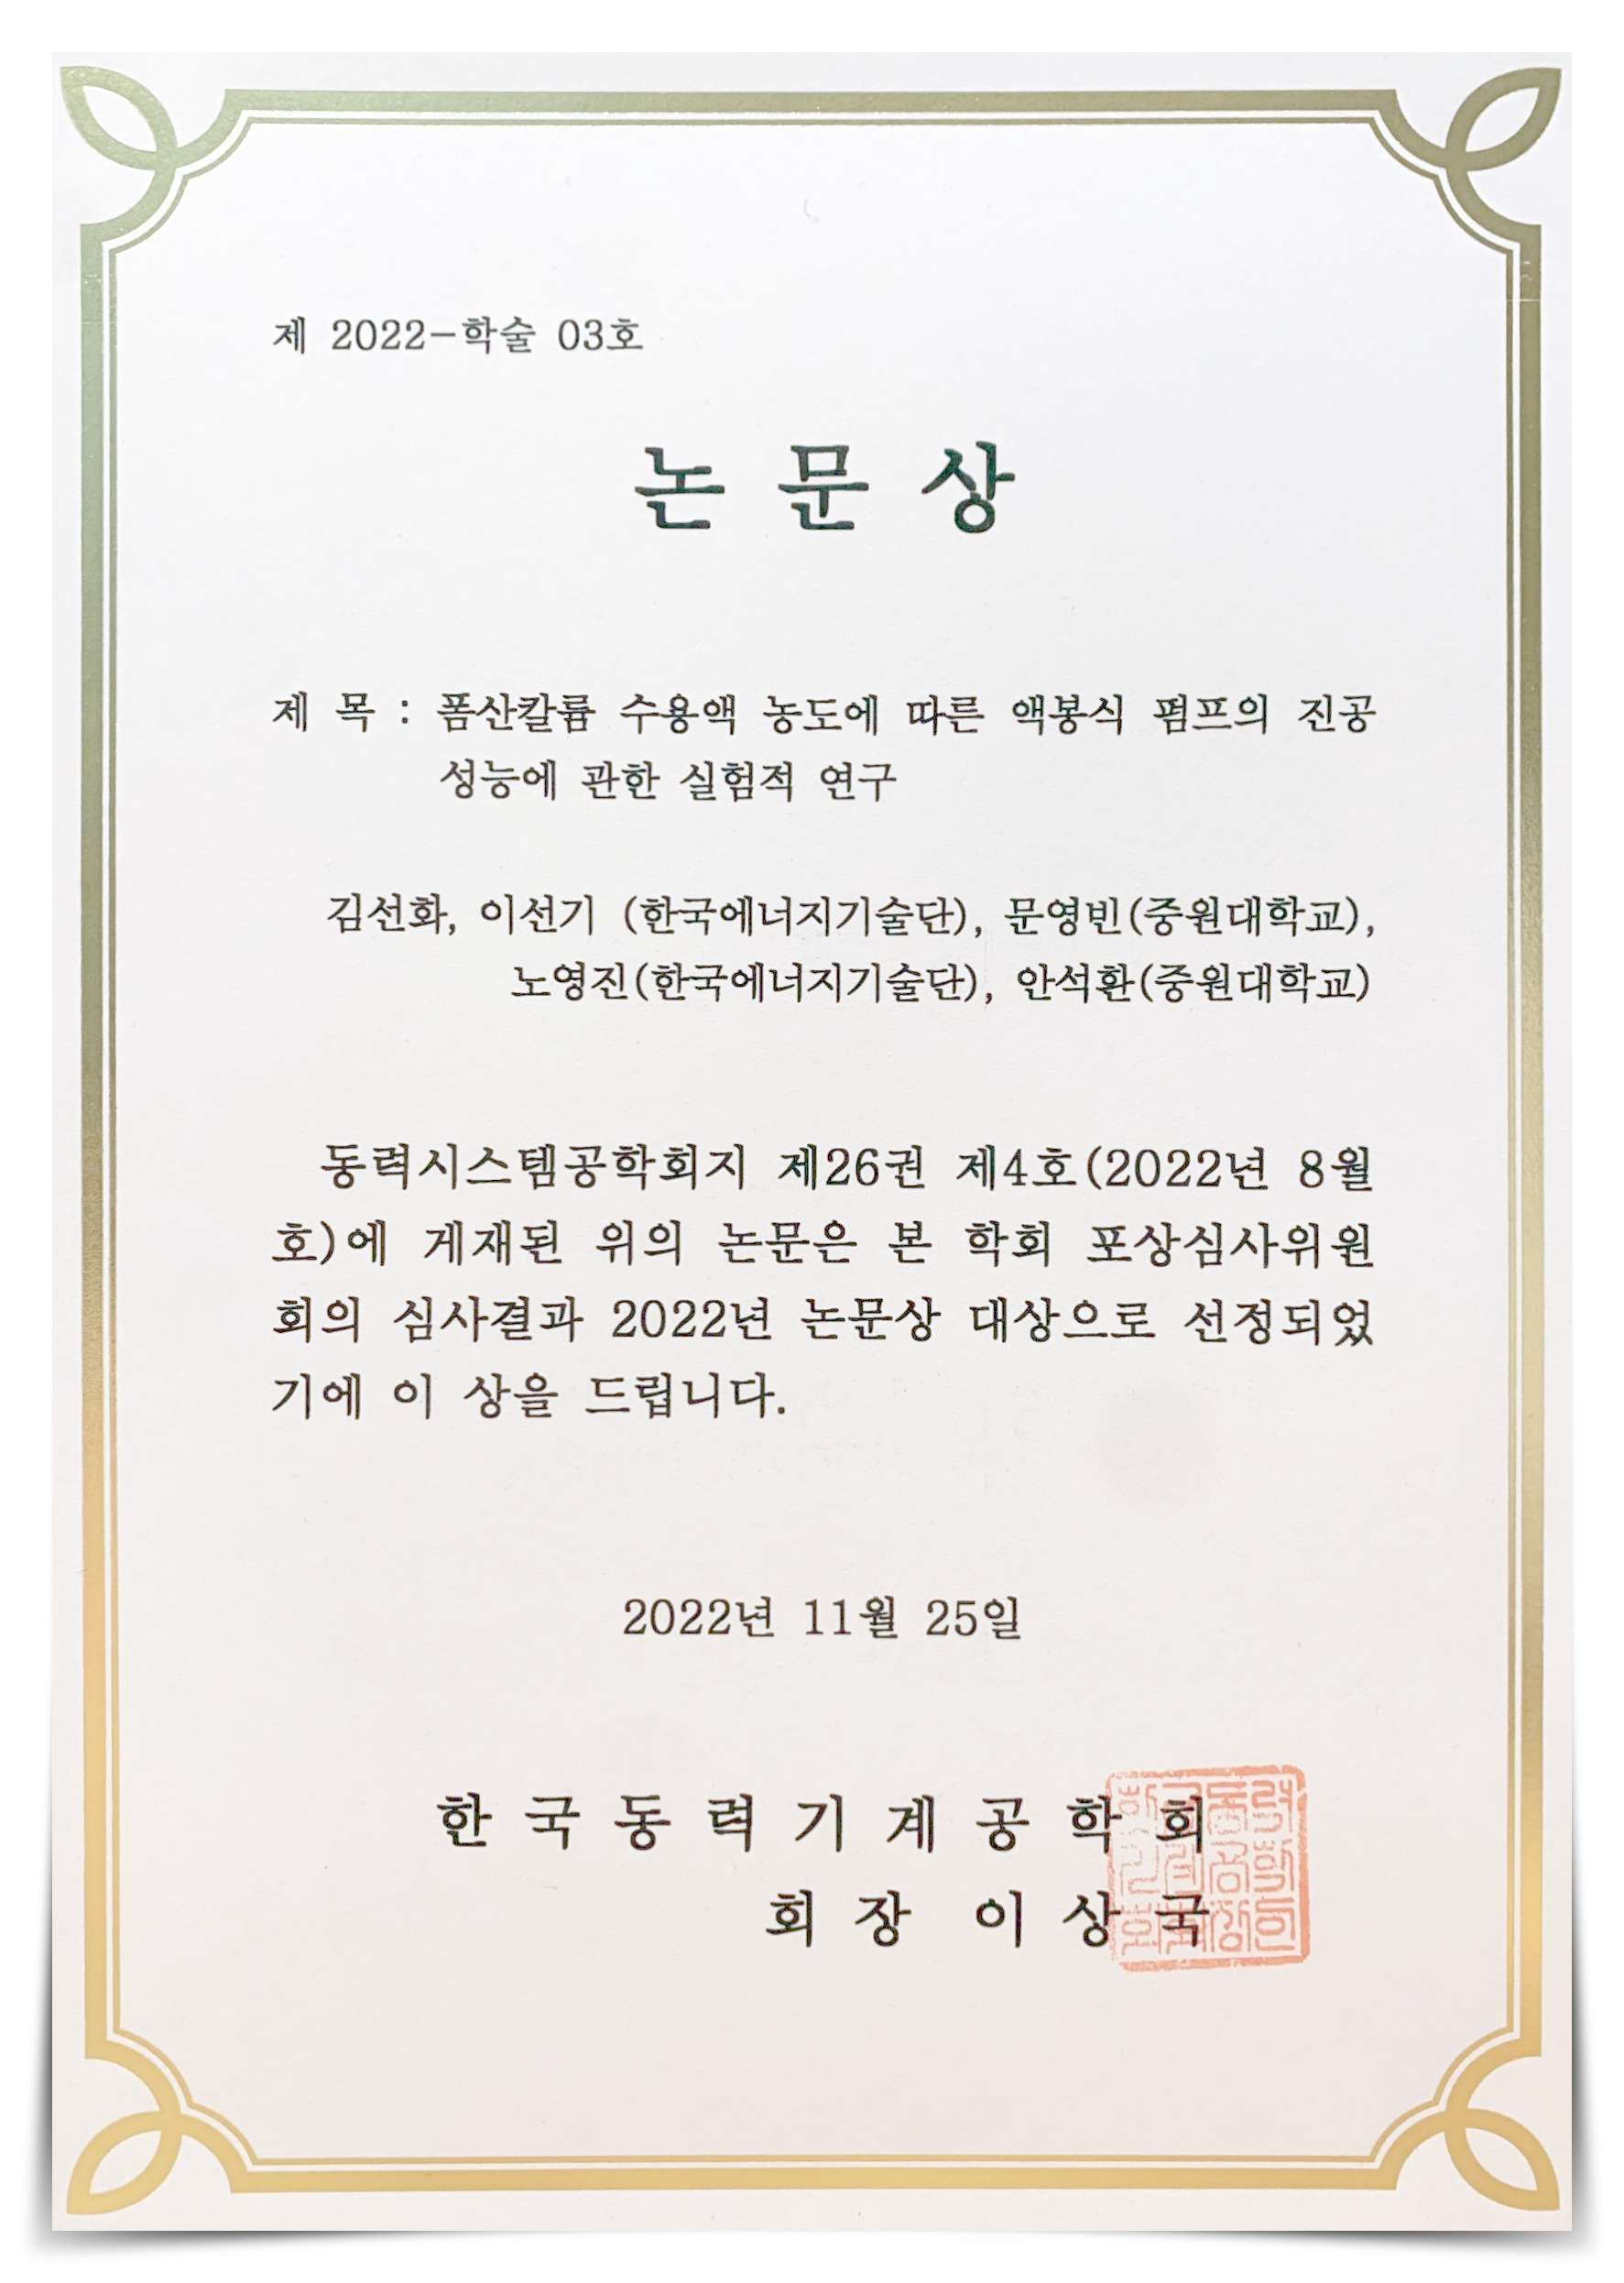 제 2022-학술 03호
논문상
제 목 : 폼산칼륨 수용액 농도에 따른 액봉식 펌프의 진공
성능에 관한 실험적 연구
김선화, 이선기 (한국에너지기술단), 문영빈(중원대학교),
노영진(한국에너지기술단), 안석환(중원대학교)
동력시스템공학회지 제26권 제4호(2022년 8월
호)에 게재된 위의 논문은 본 학회 포상심사위원
회의 심사결과 2022년 논문상 대상으로 선정되었
기에 이 상을 드립니다.
2022년 11월 25일
한국동력기계공학회
회장 이상국